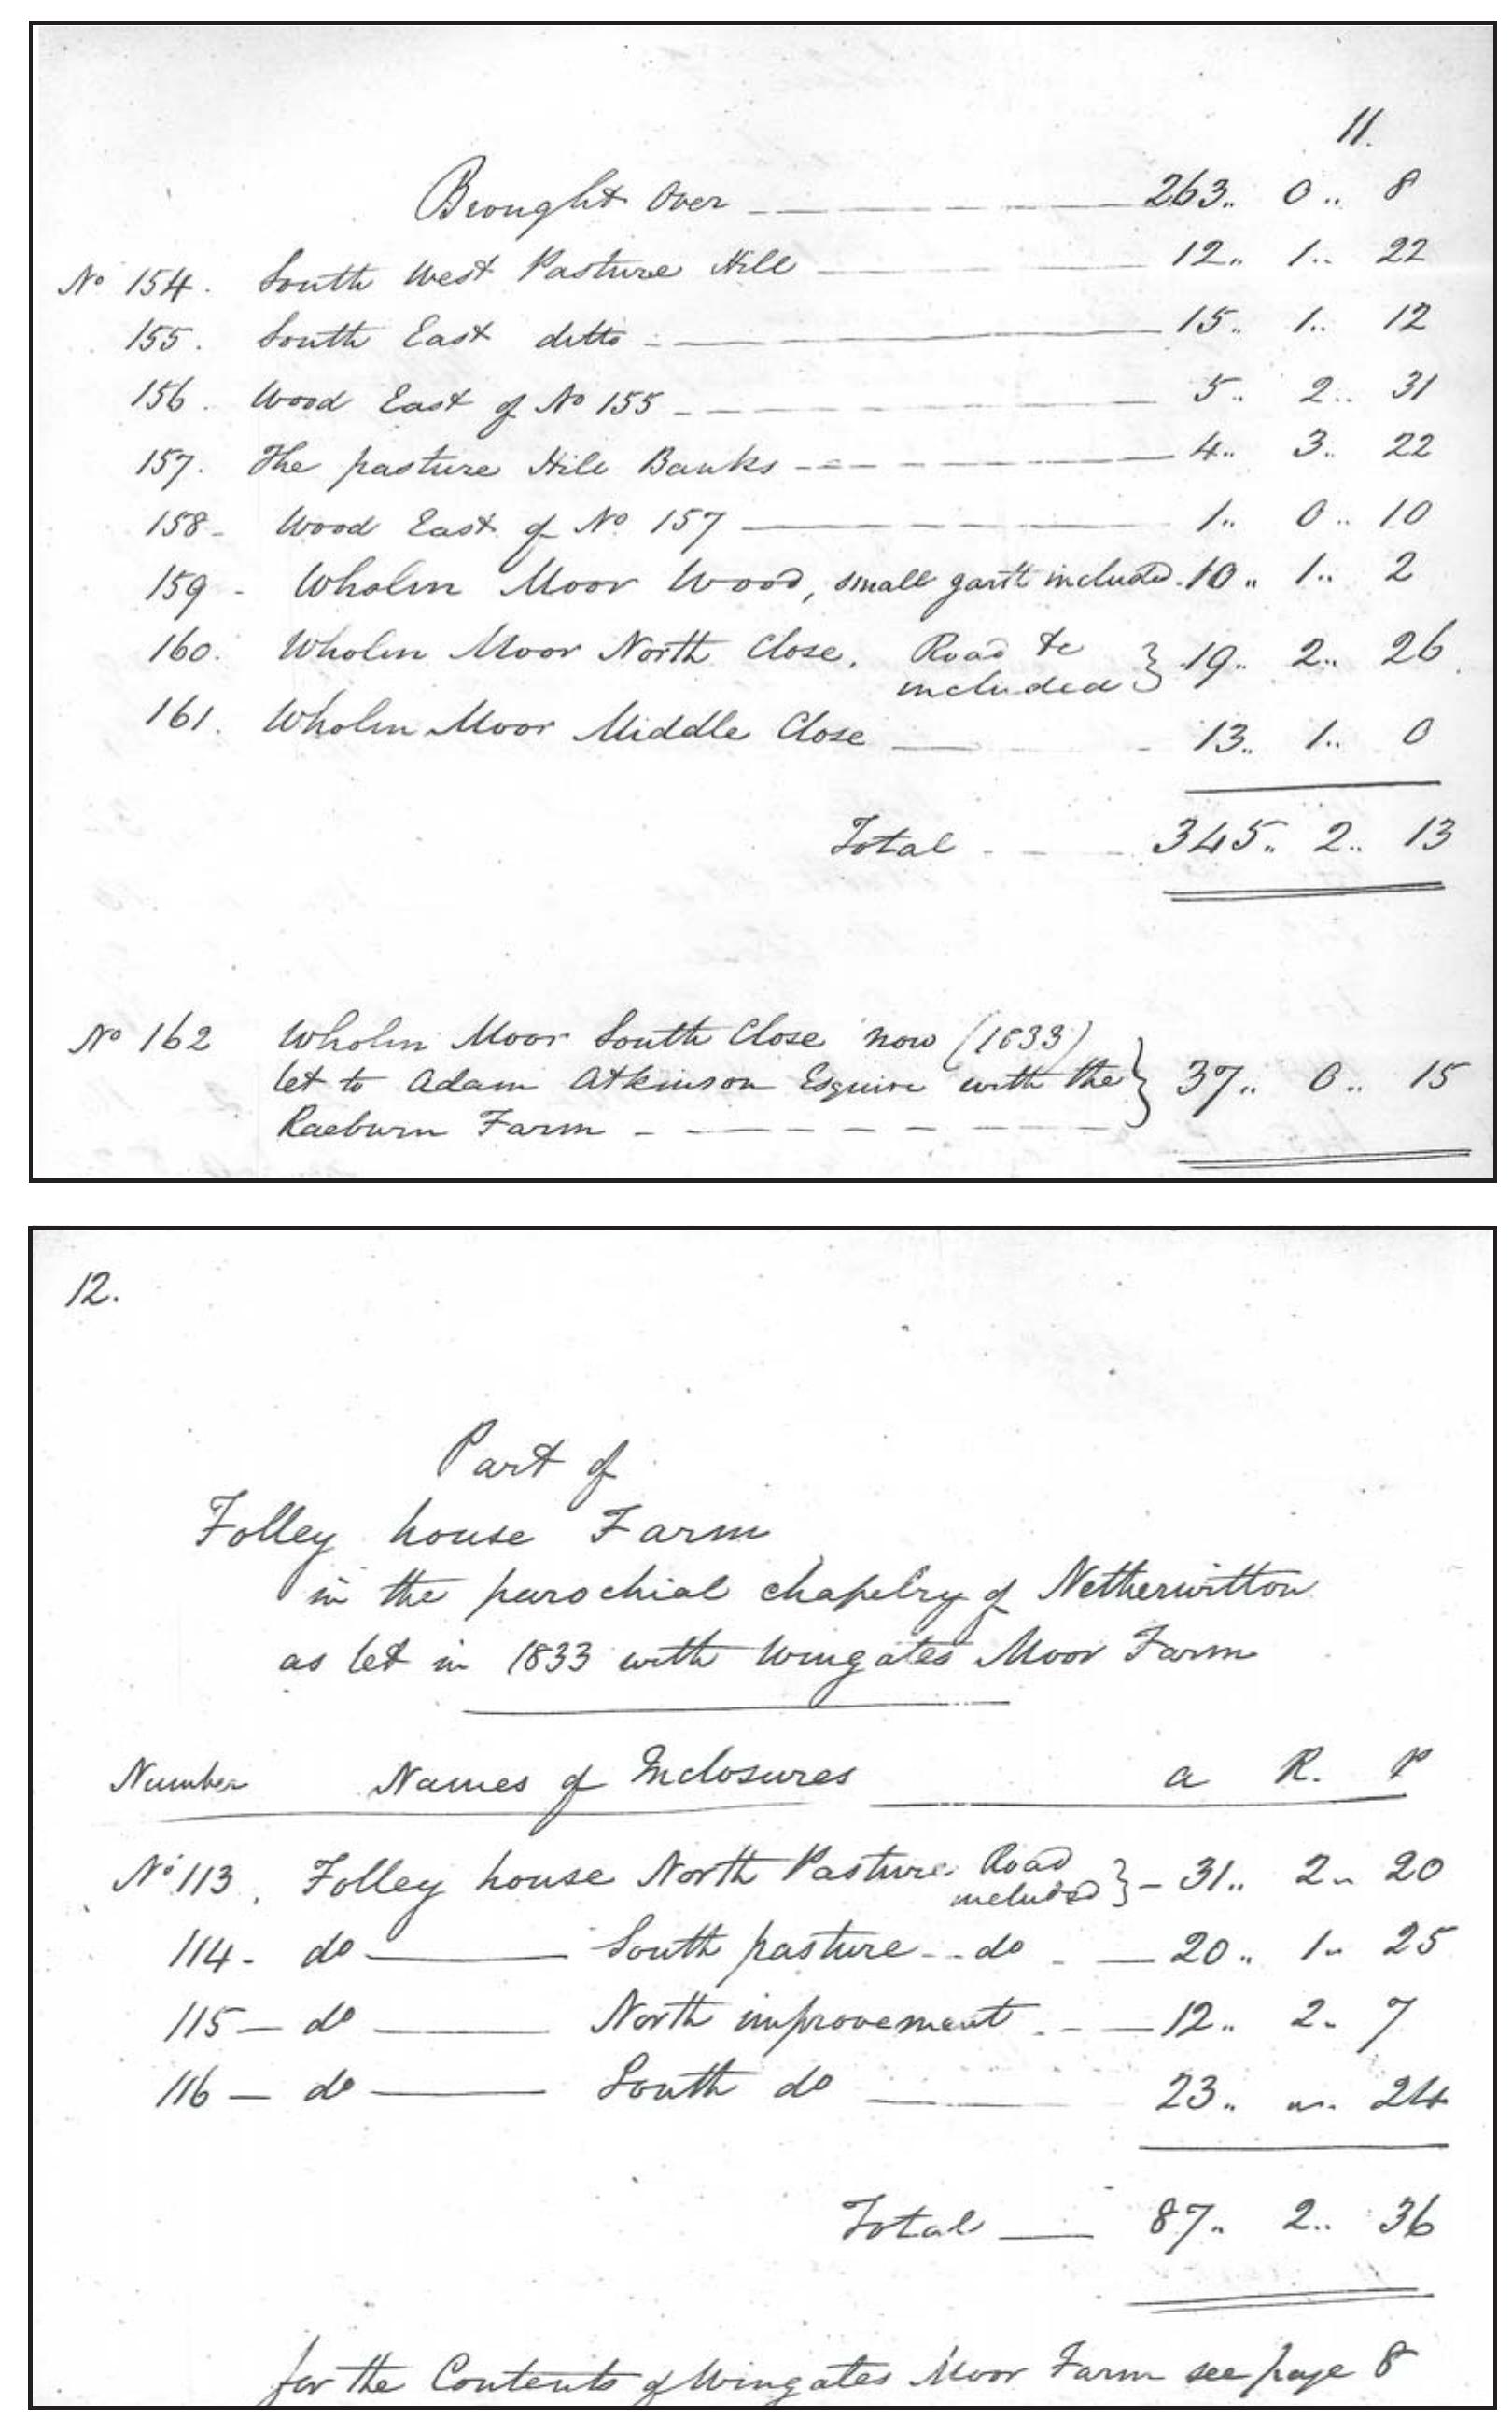 11.
Brought Over 263.. 0.. 8
No 154. South West Pasture Hill 12.. 1.. 22
155. South East ditto 15.. 1.. 12
156. Wood East of No 155 5.. 2.. 31
157. The pasture Hill Banks 4.. 3.. 22
158 - Wood East of No 157 1.. 0.. 10
159 - Wholm Moor Wood, small garth included. 10.. 1.. 2
160. Wholm Moor North Close. Road &c included } 19.. 2.. 26
161. Wholm Moor Middle Close 13.. 1.. 0
Total 345.. 2.. 13
No 162 Wholm Moor South Close now (1833)
let to Adam Atkinson Esquire with the } 37.. 0.. 15
Raeburn Farm
12.
Part of
Folley house Farm
in the parochial chapelry of Netherwitton
as let in 1833 with Wingates Moor Farm
Number Names of Inclosures a R. P
No 113. Folley house North Pasture Road included } - 31.. 2.. 20
114 - do South pasture -- do 20.. 1.. 25
115 - do North improvement 12.. 2.. 7
116 - do South do 23.. ,, .. 24
Total 87.. 2.. 36
for the Contents of Wingates Moor Farm see page 8